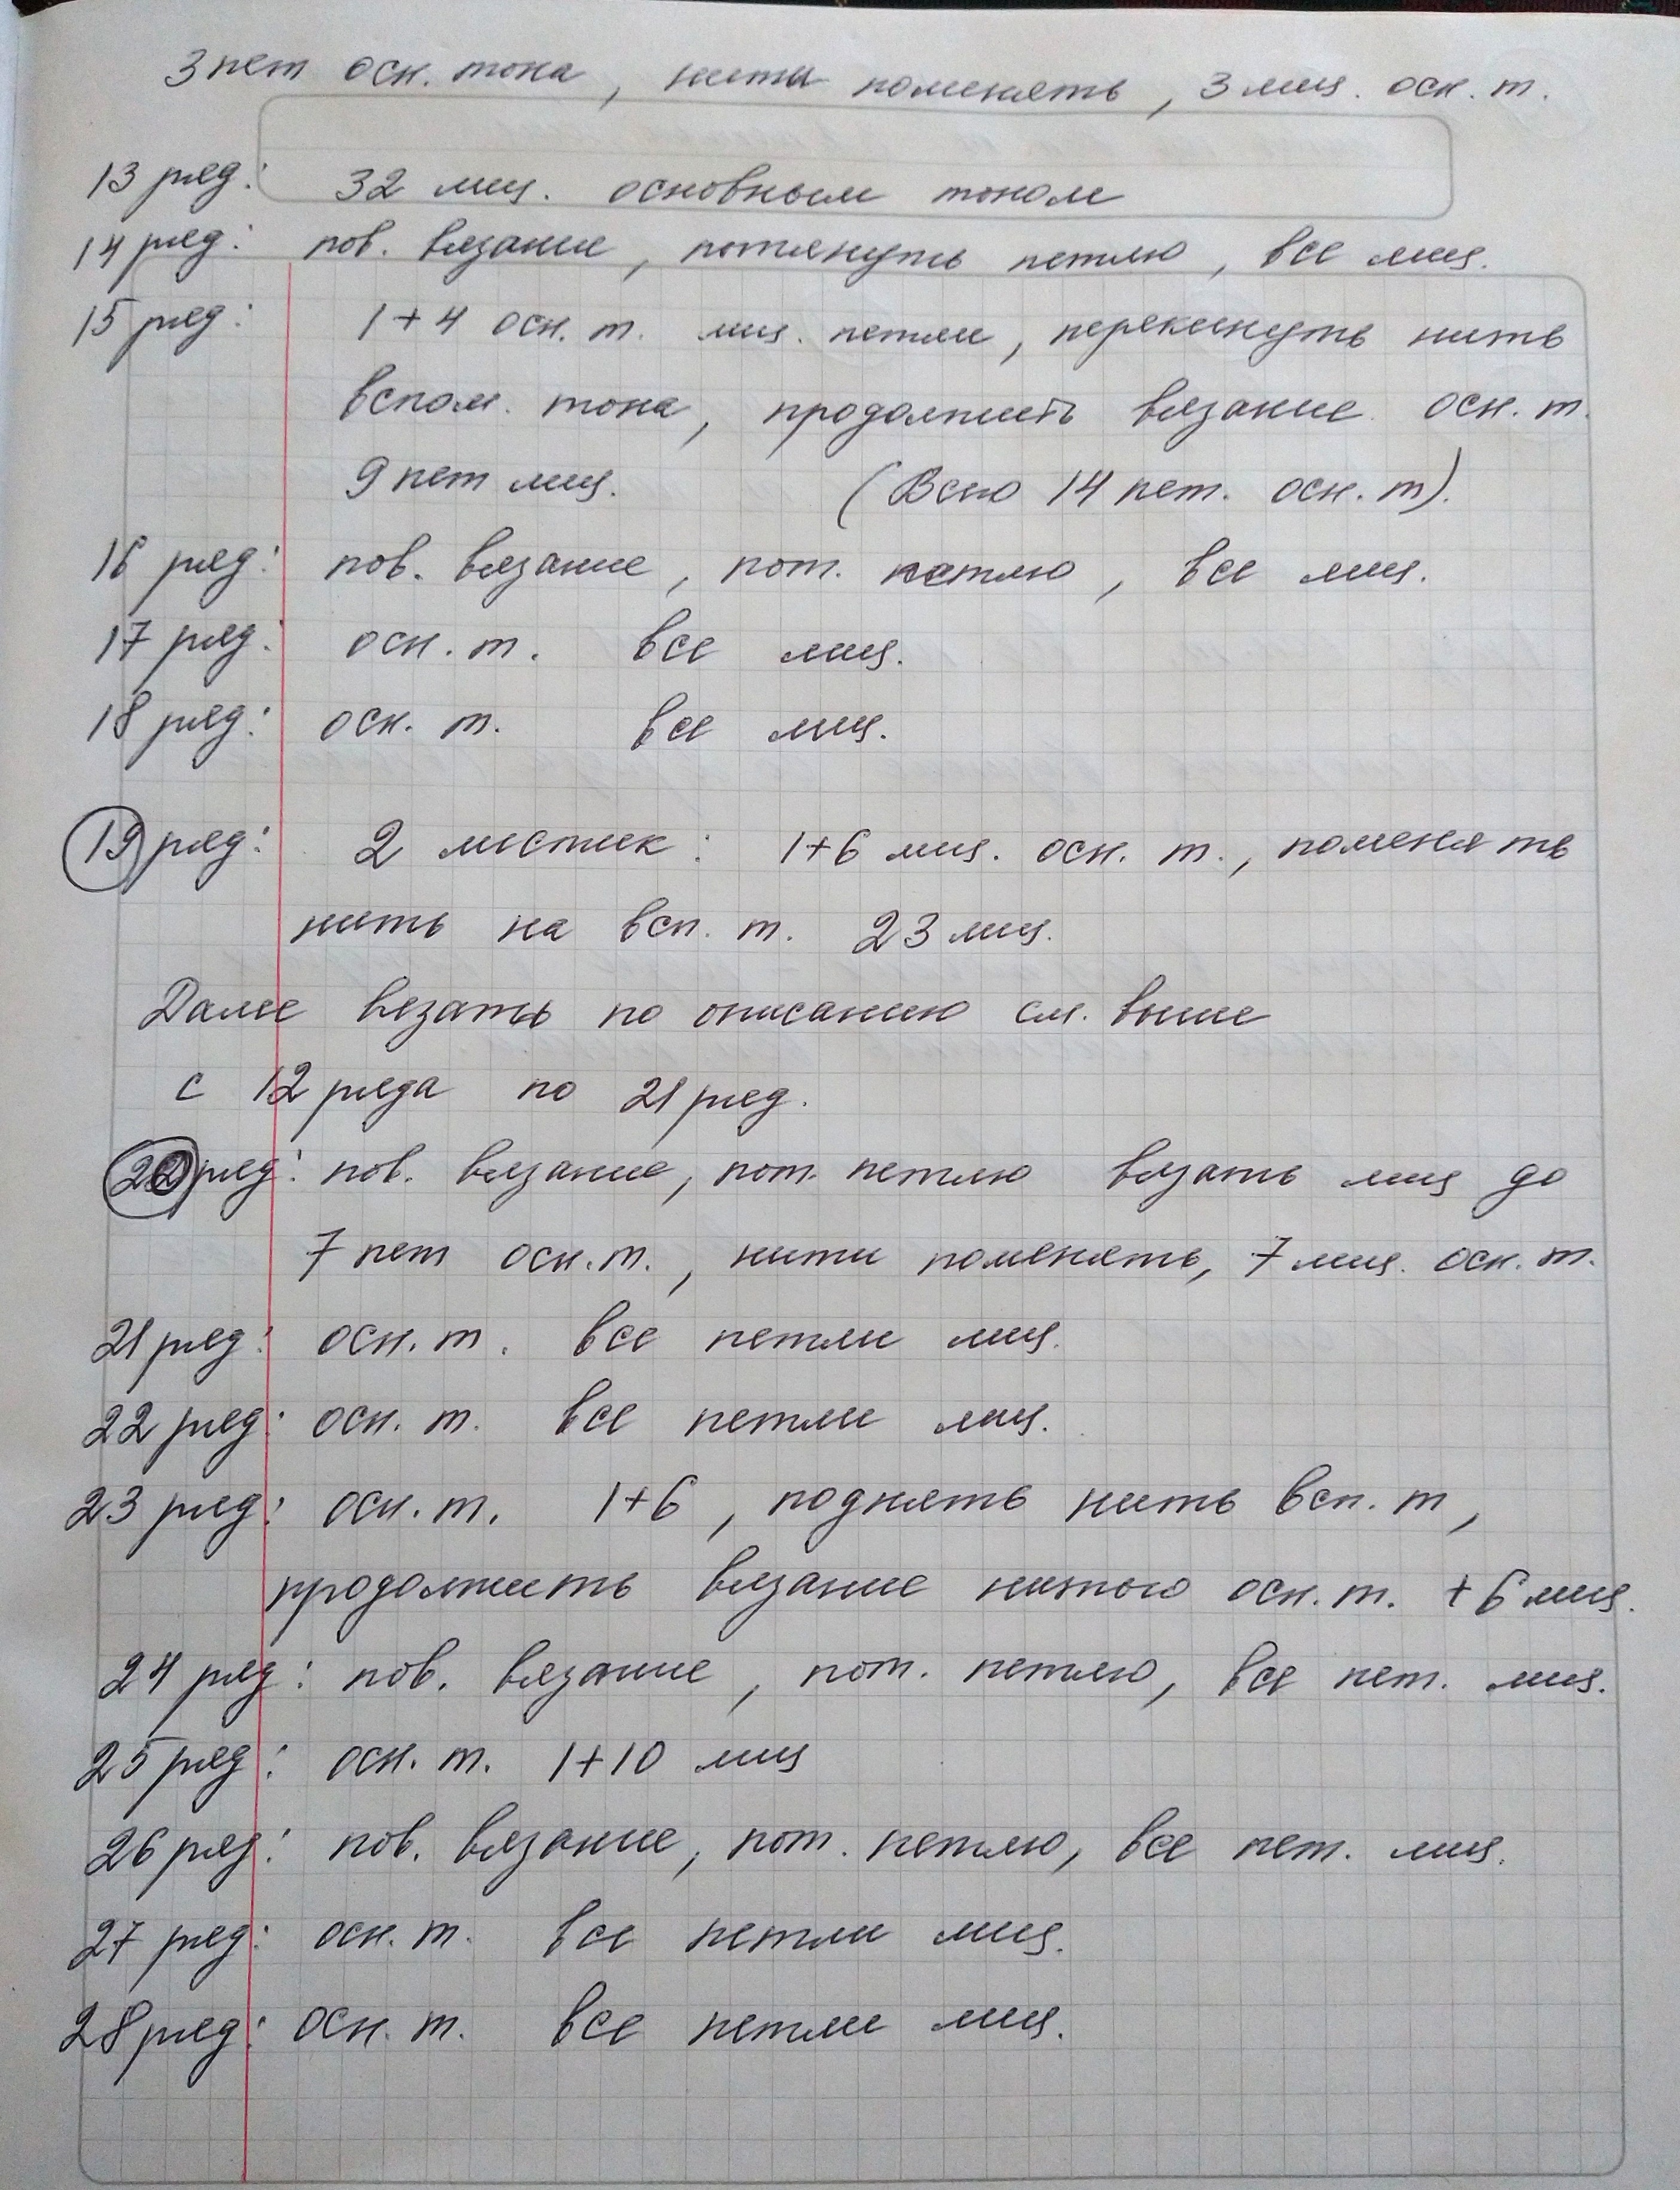 3 пет осн. тона, нити поменять, 3 лиц. осн. т.
13 ряд: 32 лиц. основным тоном
14 ряд: пов. вязание, потянуть петлю, все лиц.
15 ряд: 1+4 осн. т. лиц. петли, перекинуть нить
вспом. тона, продолжить вязание осн. т.
9 пет лиц. (Всего 14 пет. осн. т).
16 ряд: пов. вязание, пот. петлю, все лиц.
17 ряд: осн. т. все лиц.
18 ряд: осн. т. все лиц.
19 ряд: 2 листик: 1+6 лиц. осн. т., поменять
нить на всп. т. 23 лиц.
Далее вязать по описанию см. выше
с 12 ряда по 21 ряд.
20 ряд: пов. вязание, пот. петлю вязать лиц до
7 пет осн. т., нити поменять, 7 лиц. осн. т.
21 ряд: осн. т. все петли лиц.
22 ряд: осн. т. все петли лиц.
23 ряд: осн. т. 1+6, поднять нить всп. т,
продолжить вязание нитью осн. т. +6 лиц.
24 ряд: пов. вязание, пот. петлю, все пет. лиц.
25 ряд: осн. т. 1+10 лиц
26 ряд: пов. вязание, пот. петлю, все пет. лиц.
27 ряд: осн. т. все петли лиц.
28 ряд: осн. т. все петли лиц.